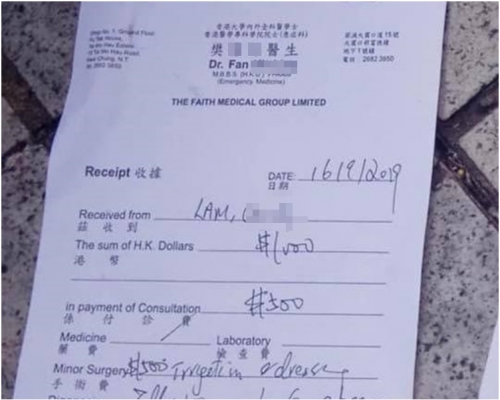 Shop No. 1, Ground Floor
香港大學內外全科醫學士
香港醫學專科學院院士(急症科)
樊 醫生
Dr. Fan
M.B.B.S. (H.K.U.)
(Emergency Medicine)
地下1號舖
電話:2682 3950
THE FAITH MEDICAL GROUP LIMITED
Receipt 收據
DATE: 16/9/2019
日期
Received from LAM,
茲收到
The sum of H.K. Dollars $1000
港幣
in payment of Consultation $500
係付診費
Medicine Laboratory
藥費 檢查費
Minor Surgery $500 Irrigation & dressing
手術費